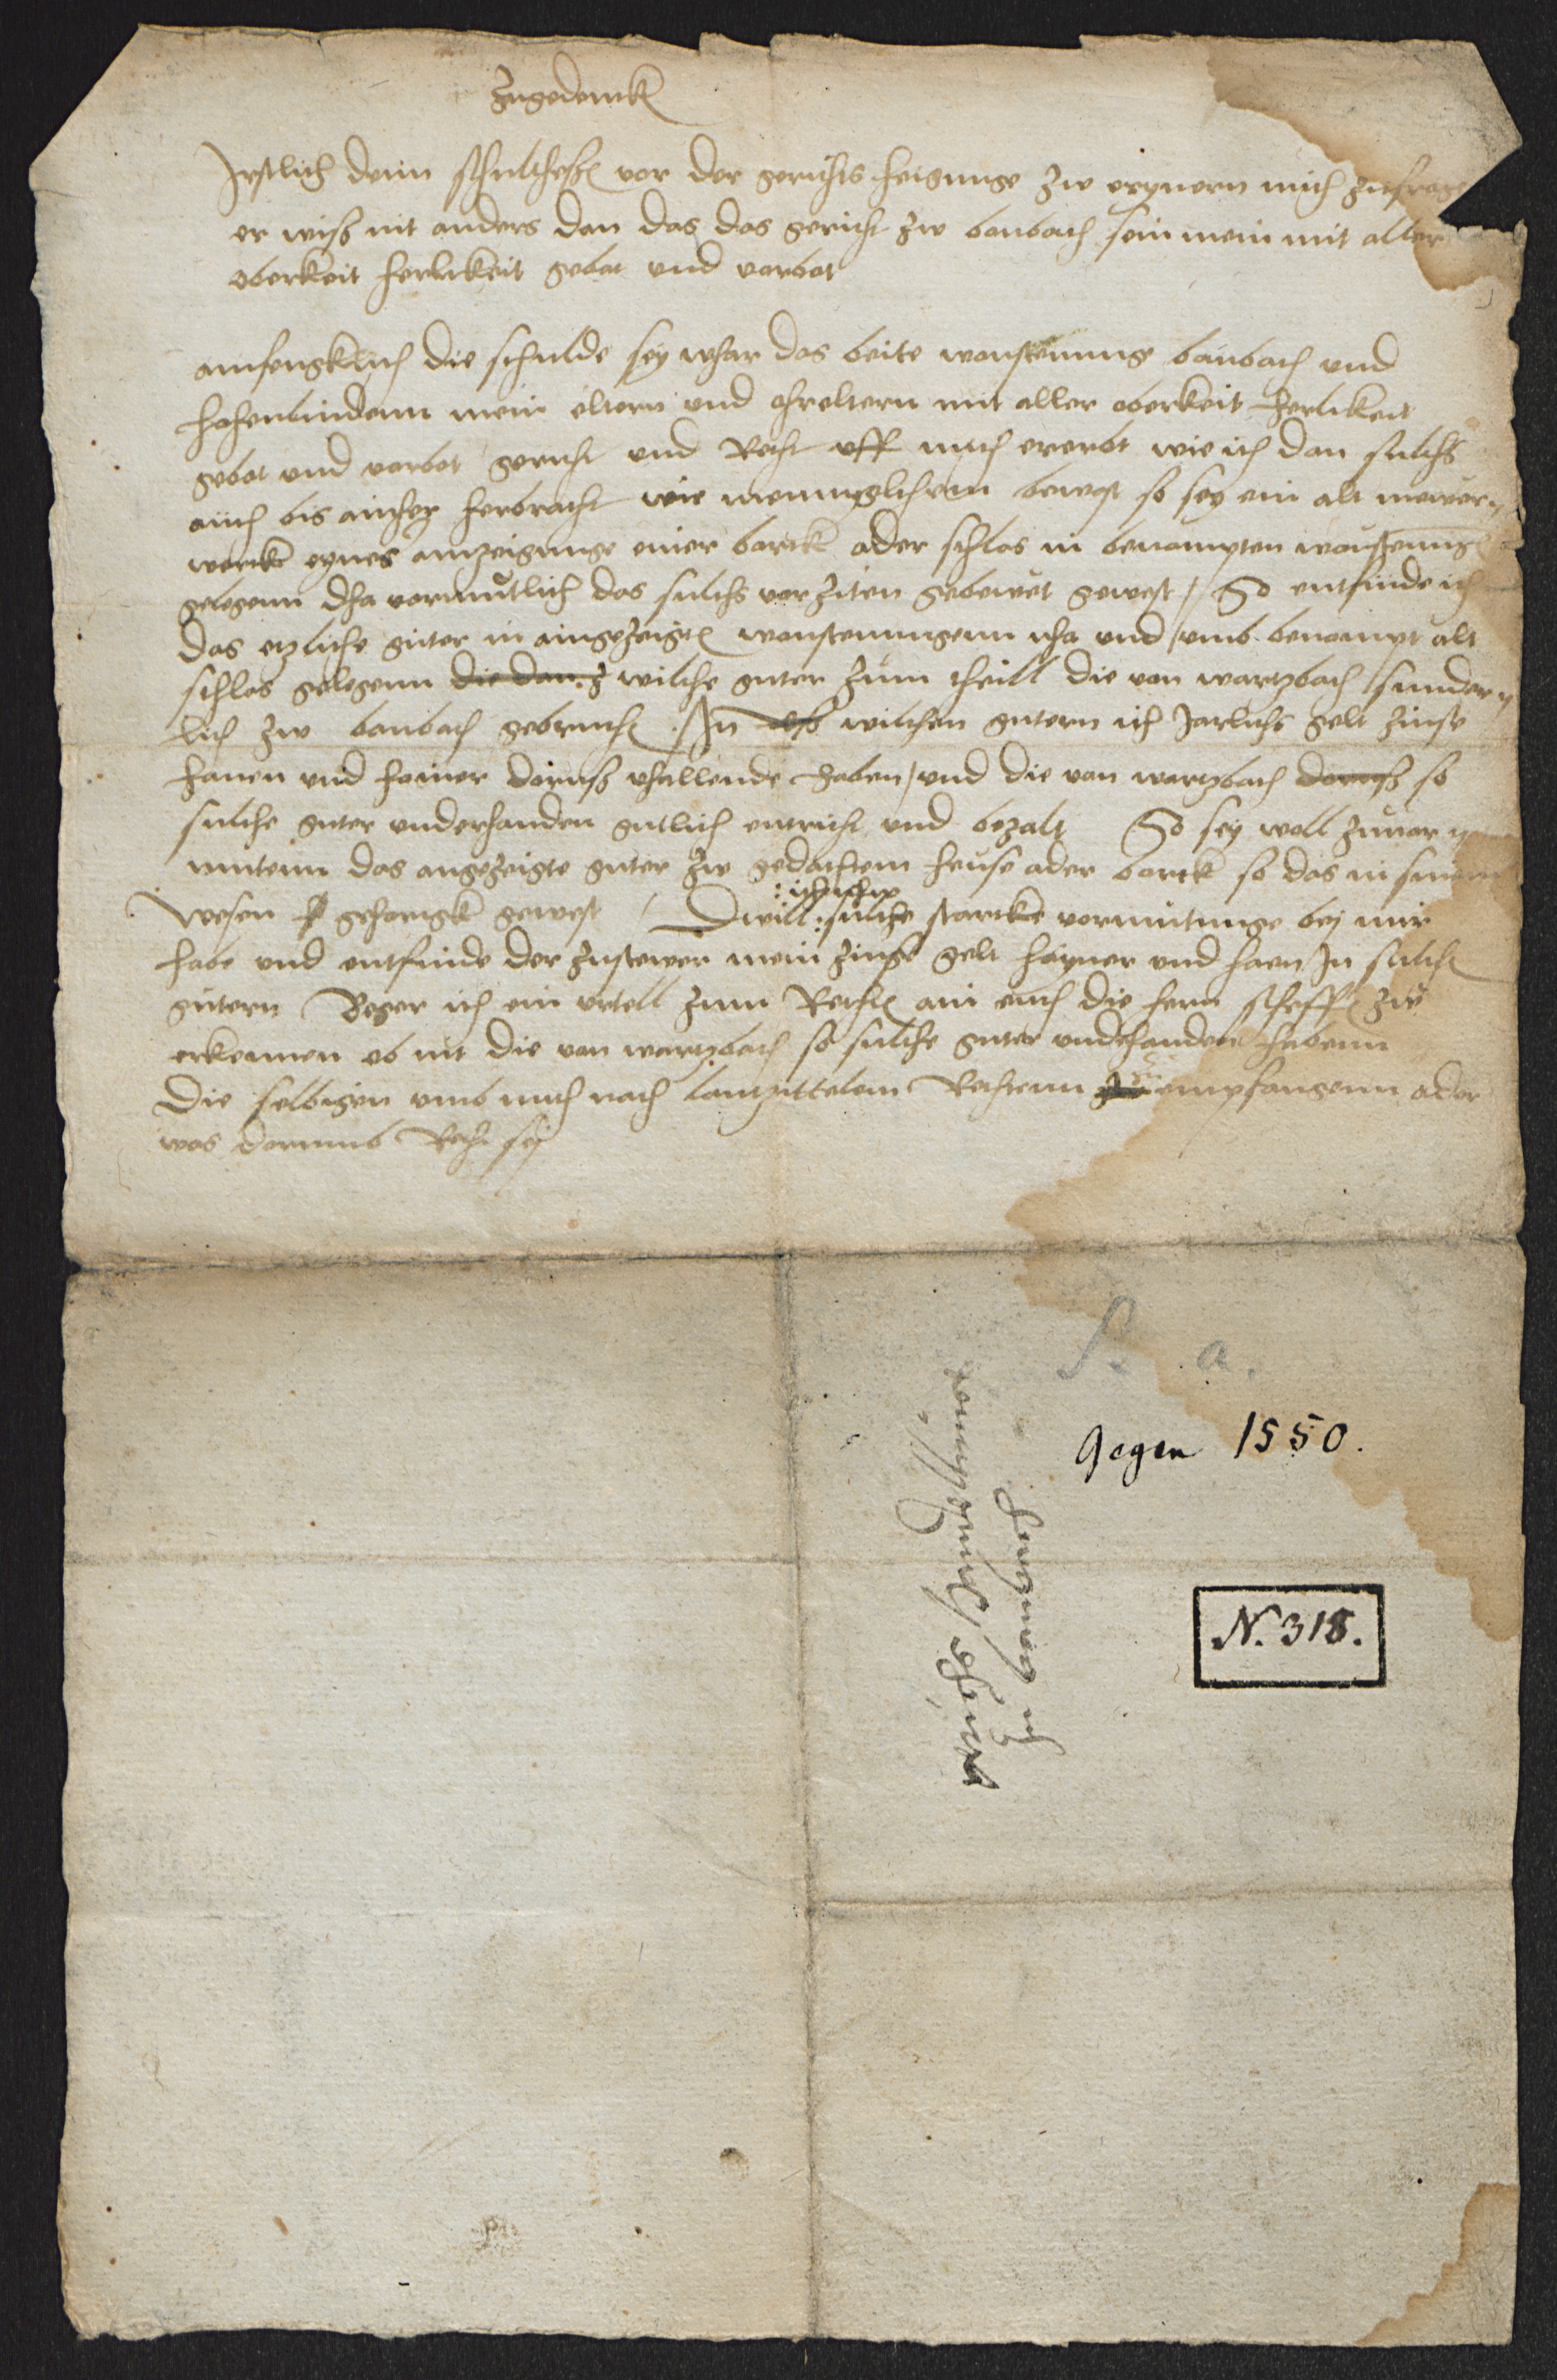 Zugedenck
Irstlich dem schulthess vor der gerichts heigunge zw erynern mich zufrag
er wiss nit anders dan das das gericht zw banbach sein mein mit aller
oberkeit herlikeit gebot und vorbot
anfengklich die schulde sey whar das beite wonstenung banbach und
hohenlindenn mein eltern und ehreltern mit aller oberkeit herlikeit
gebot und vorbot gericht und Recht uff mich ererbt wie ich dan sulchs
auch bis anher herbracht wie menniglichenn bewost so sey ein alt mewer
wercke eynes antzeigunge einer borck ader schlos in benompten wonstenung
gelegenn dha vormutlich das sulchs vor ziten gebewet gewest / So entfinde ich
das etzliche guter in angezeigten wonstenungenn nha und umb benompt alt
schlos gelegenn die dan z wilche guter zum theill die von wartzbach sunder
lich zw banbach gebruchen / In wilchen gutern ich Jarlichs gelt zinse
hanen und honer doruss fhallende haben / und die von wartzbach doruss so
sulche guter underhanden gutlich entricht und bezalt So sey woll zuvor
muten das angezeigte guter zw gedachtem heuse ader borck so das in sinem
Wesen gehorigk gewest / Dwill sulche starcke vormutunge bey mir
habe und entfinde der zustewer mein zinse gelt honer und haen In sulch
gutern Beger ich ein urtell zum Rechten an euch die hern scheffen zw
erkennen ob nit die von wartzbach so sulche guter underhanden habenn
die selbigen umb mich nach lantzittelem Rechtenn zw empfangenn ader
was dorumb Recht sey
Gegen 1550.
N. 318.